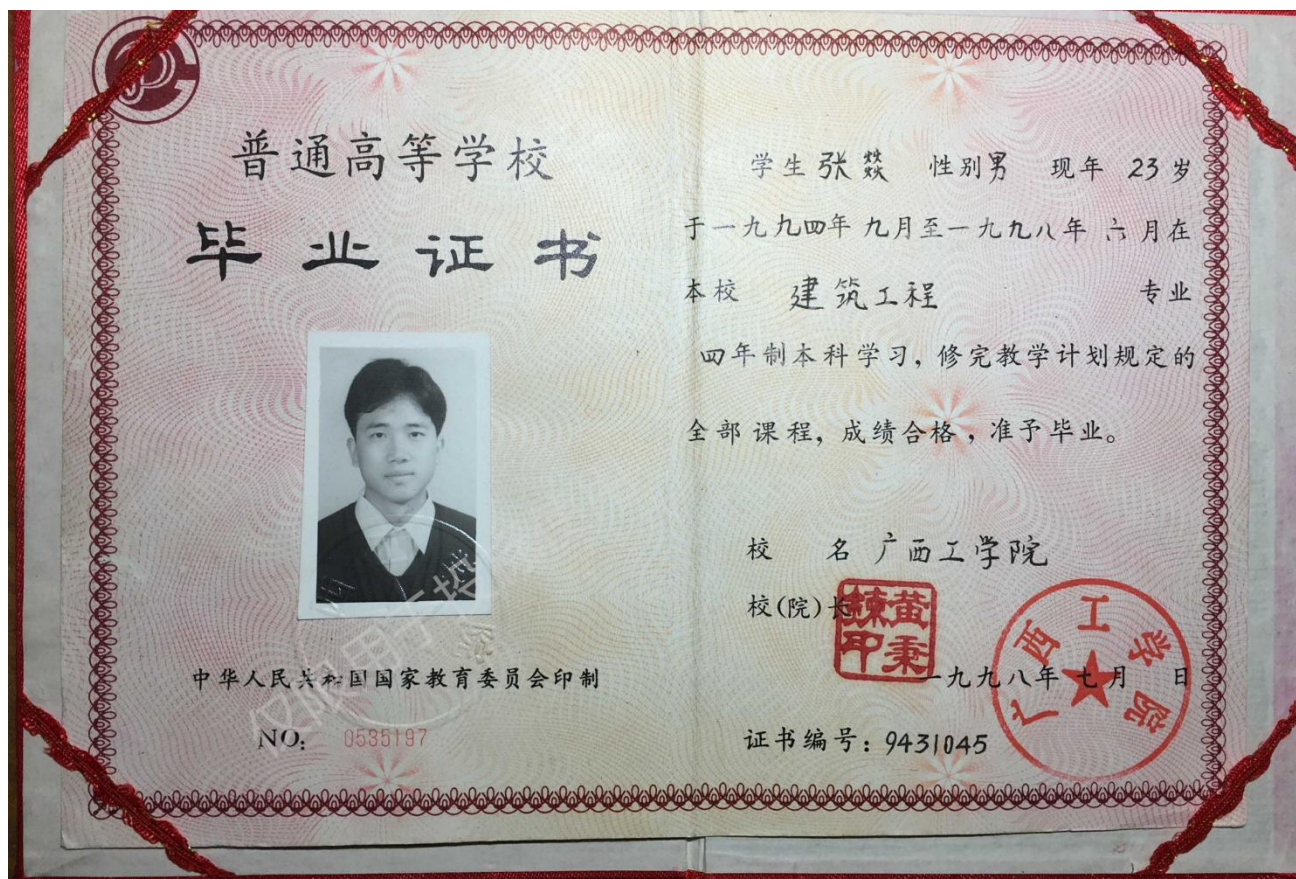 普通高等学校
毕业证书
中华人民共和国国家教育委员会印制
NO: 0535197
仅限用于
学生 张燚 性别 男 现年 23 岁
于一九九四年九月至一九九八年六月在
本校 建筑工程 专业
四年制本科学习,修完教学计划规定的
全部课程,成绩合格,准予毕业。
校 名 广西工学院
校(院)长
黄秉
印
一九九八年七月 日
广西工学院
证书编号:9431045